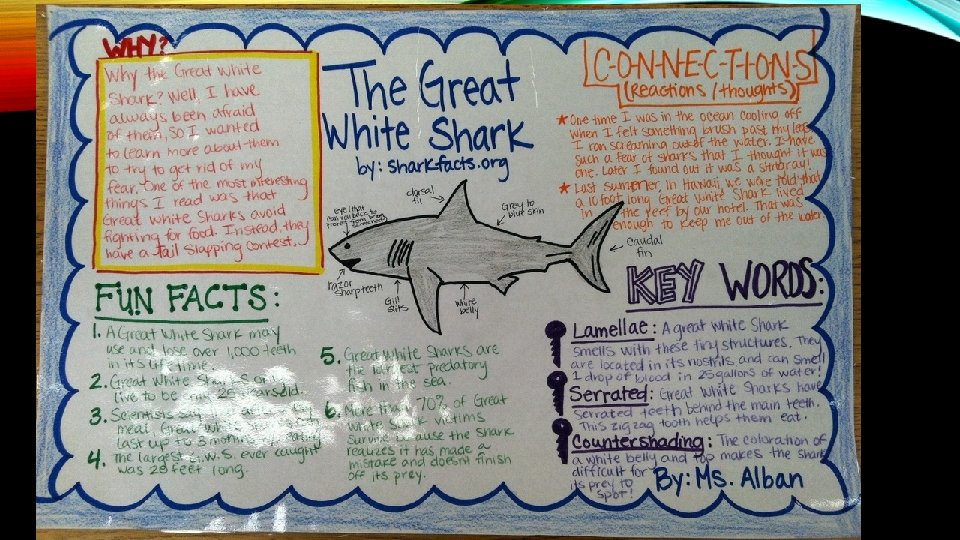 WHY?
Why the Great White
Shark? Well, I have
always been afraid
of them, so I wanted
to learn more about them
to try to get rid of my
fear. One of the most interesting
things I read was that
Great White Sharks avoid
fighting for food. Instead, they
have a tail slapping contest.
The Great
White Shark
by: sharkfacts.org
C-O-N-N-E-C-T-I-O-N-S
(Reactions / thoughts)
★ One time I was in the ocean cooling off
when I felt something brush past my leg.
I ran screaming out of the water. I have
such a fear of sharks that I thought it was
one. Later I found out it was a stingray!
★ Last summer, in Hawaii, we were told that
a 10 foot long Great White Shark lived
in the reef by our hotel. That was
enough to keep me out of the water.
dorsal
fin
Grey to
blue skin
eye that
caudal
fin
Razor
sharp teeth
Gill
slits
white
belly
FUN FACTS:
1. A Great White Shark may
use and lose over 1,000 teeth
in its lifetime.
2. Great White Sharks
live to be old.
3. Scientists say
meal, Great White
last up to 3 months
4. The largest G.W.S. ever caught
was 23 feet long.
5. Great White Sharks are
the largest predatory
fish in the sea.
6. More than 70% of Great
White Shark victims
survive because the shark
realizes it has made a
mistake and doesnt finish
off its prey.
KEY WORDS:
Lamellae: A great white Shark
smells with these tiny structures. They
are located in its nostrils and can smell
1 drop of blood in 25 gallons of water!
Serrated: Great White Sharks have
serrated teeth behind the main teeth.
This zig zag tooth helps them eat.
Countershading: The coloration of
a white belly and top makes the shark
difficult for
its prey to
spot!
By: Ms. Alban